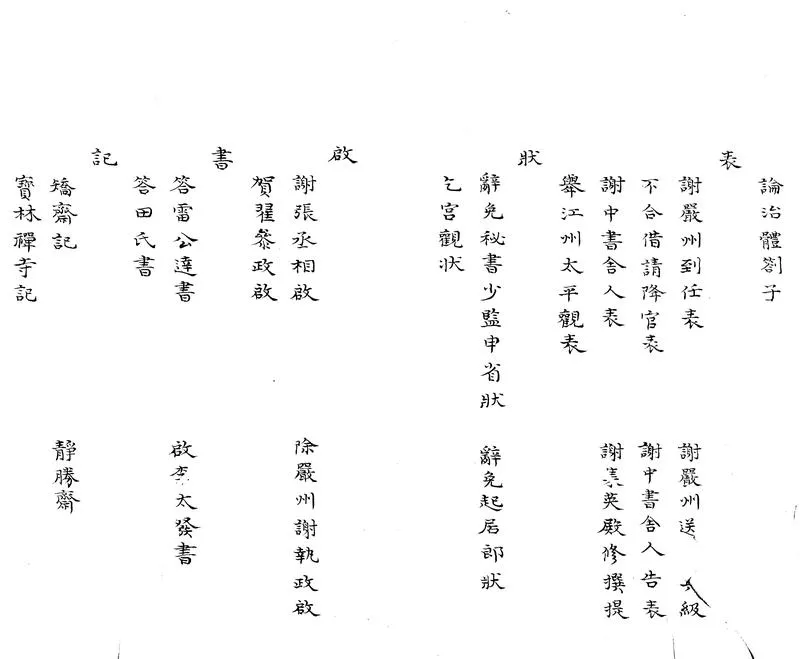 論治體劄子
表
謝嚴州到任表 謝嚴州送 級
不合借請降官表 謝中書舍人告表
謝中書舍人表 謝集英殿修撰提
舉江州太平觀表
狀
辭免秘書少監申省狀 辭免起居郎狀
乞宮觀狀
啟
謝張丞相啟 除嚴州謝執政啟
賀翟參政啟
書
答雷公達書 啟李太發書
答田氏書
記
矯齋記 靜勝齋
寶林禪寺記